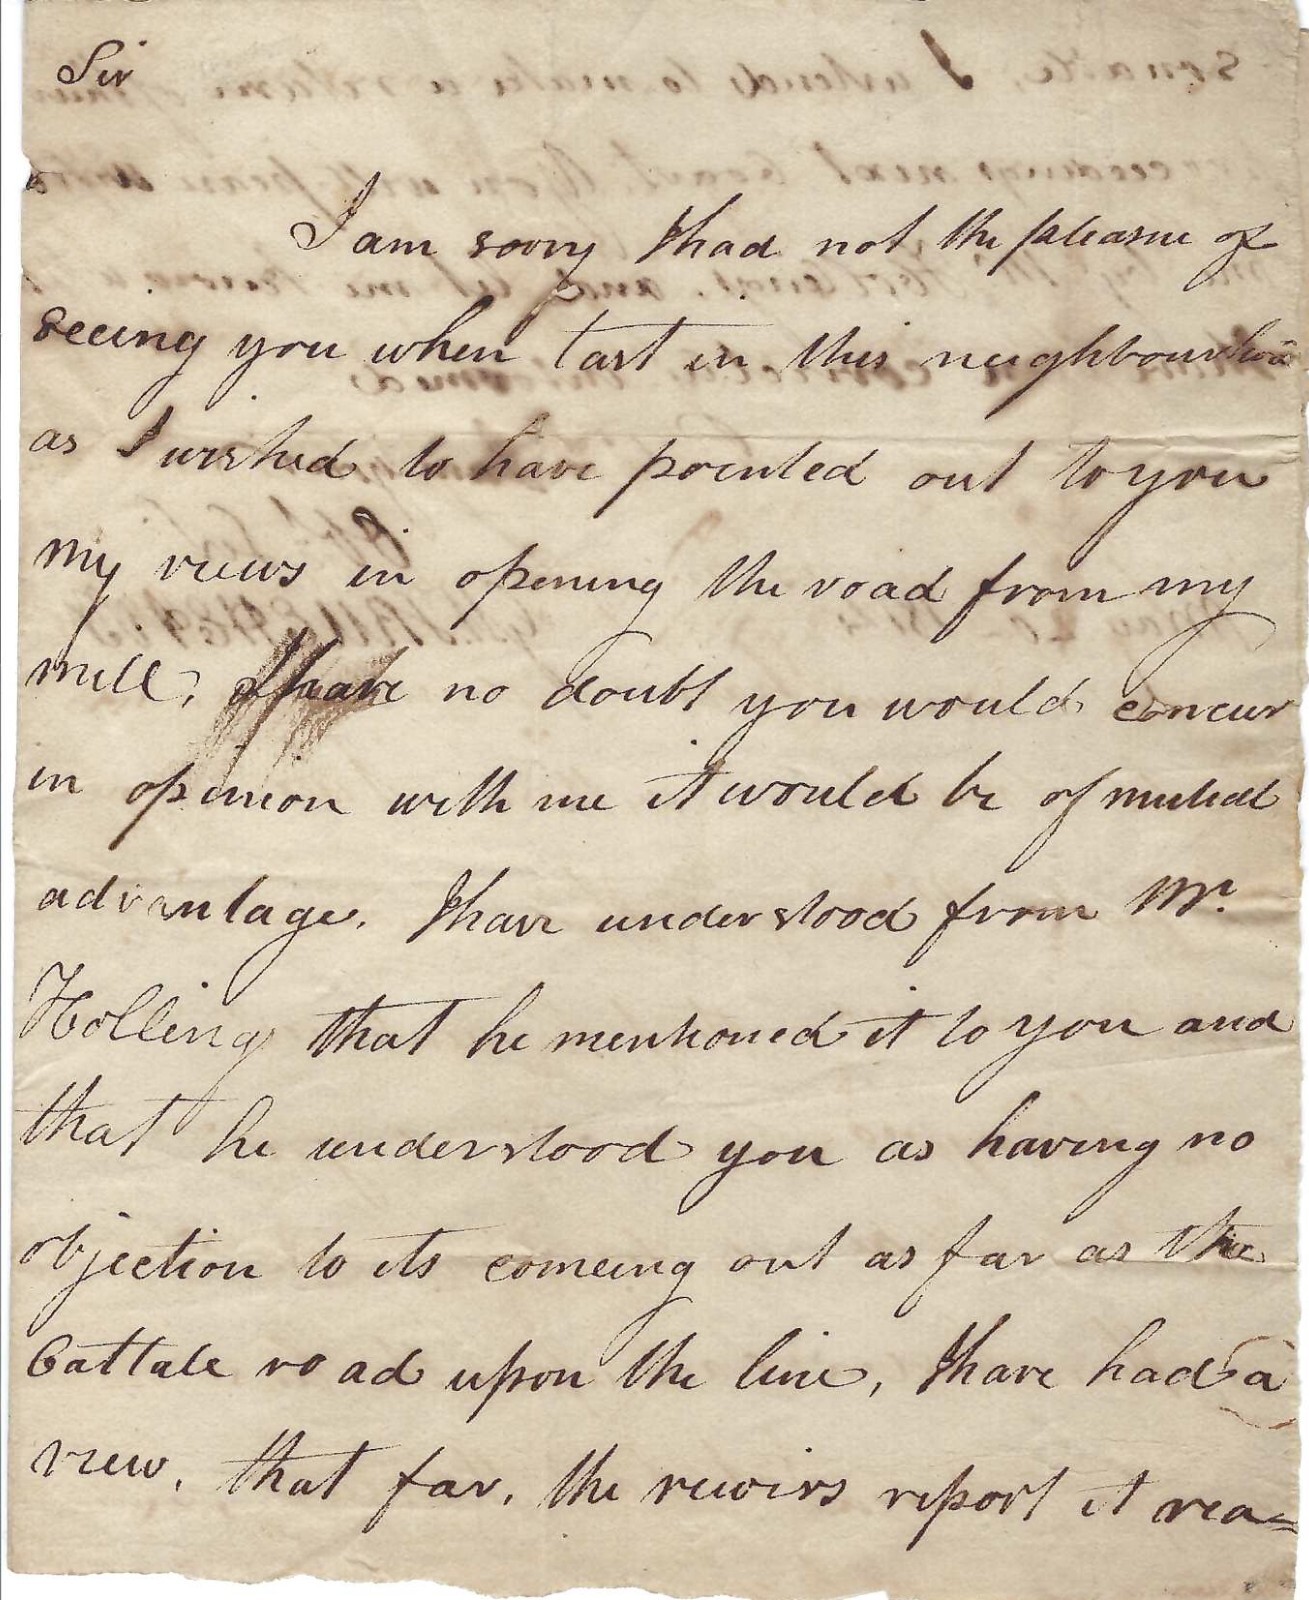 Sir
I am sorry I had not the pleasure of
seeing you when last in this neighbourhood
as I wished to have pointed out to you
my views in opening the road from my
mill, I have no doubt you would concur
in opinion with me it would be of mutual
advantage. I have understood from Mr.
Holling that he mentioned it to you and
that he understood you as having no
objection to its comeing out as far as the
Cattale road upon the line, I have had a
view, that far, the viewers report it rea=